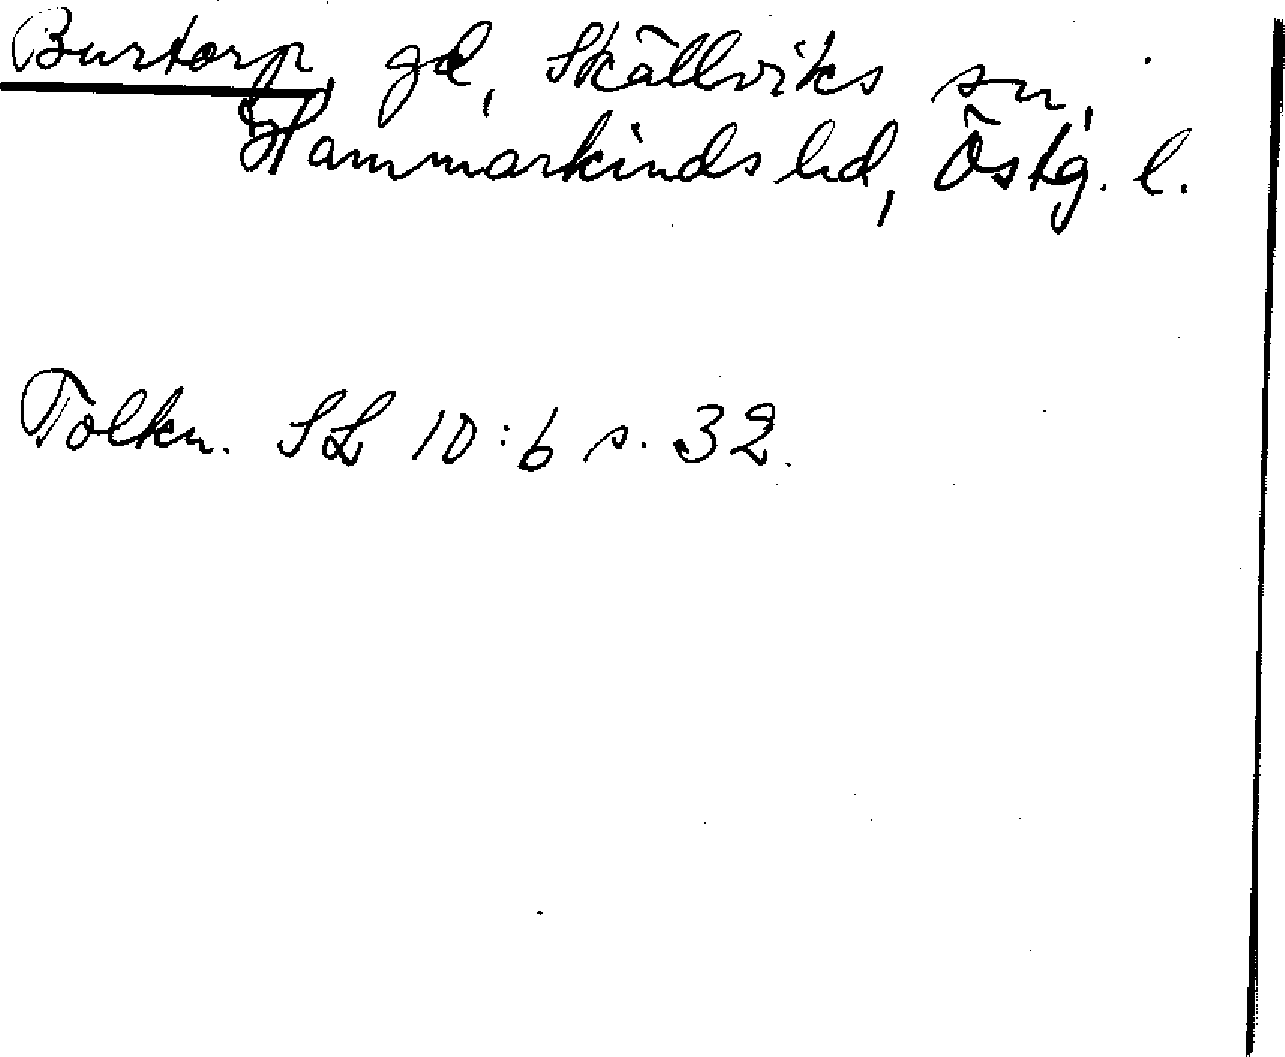 Burtorp, gd, Skällviks sn,
Hammarkinds hd, Östg. l.
Tolkn. SL 10:6 s. 32.